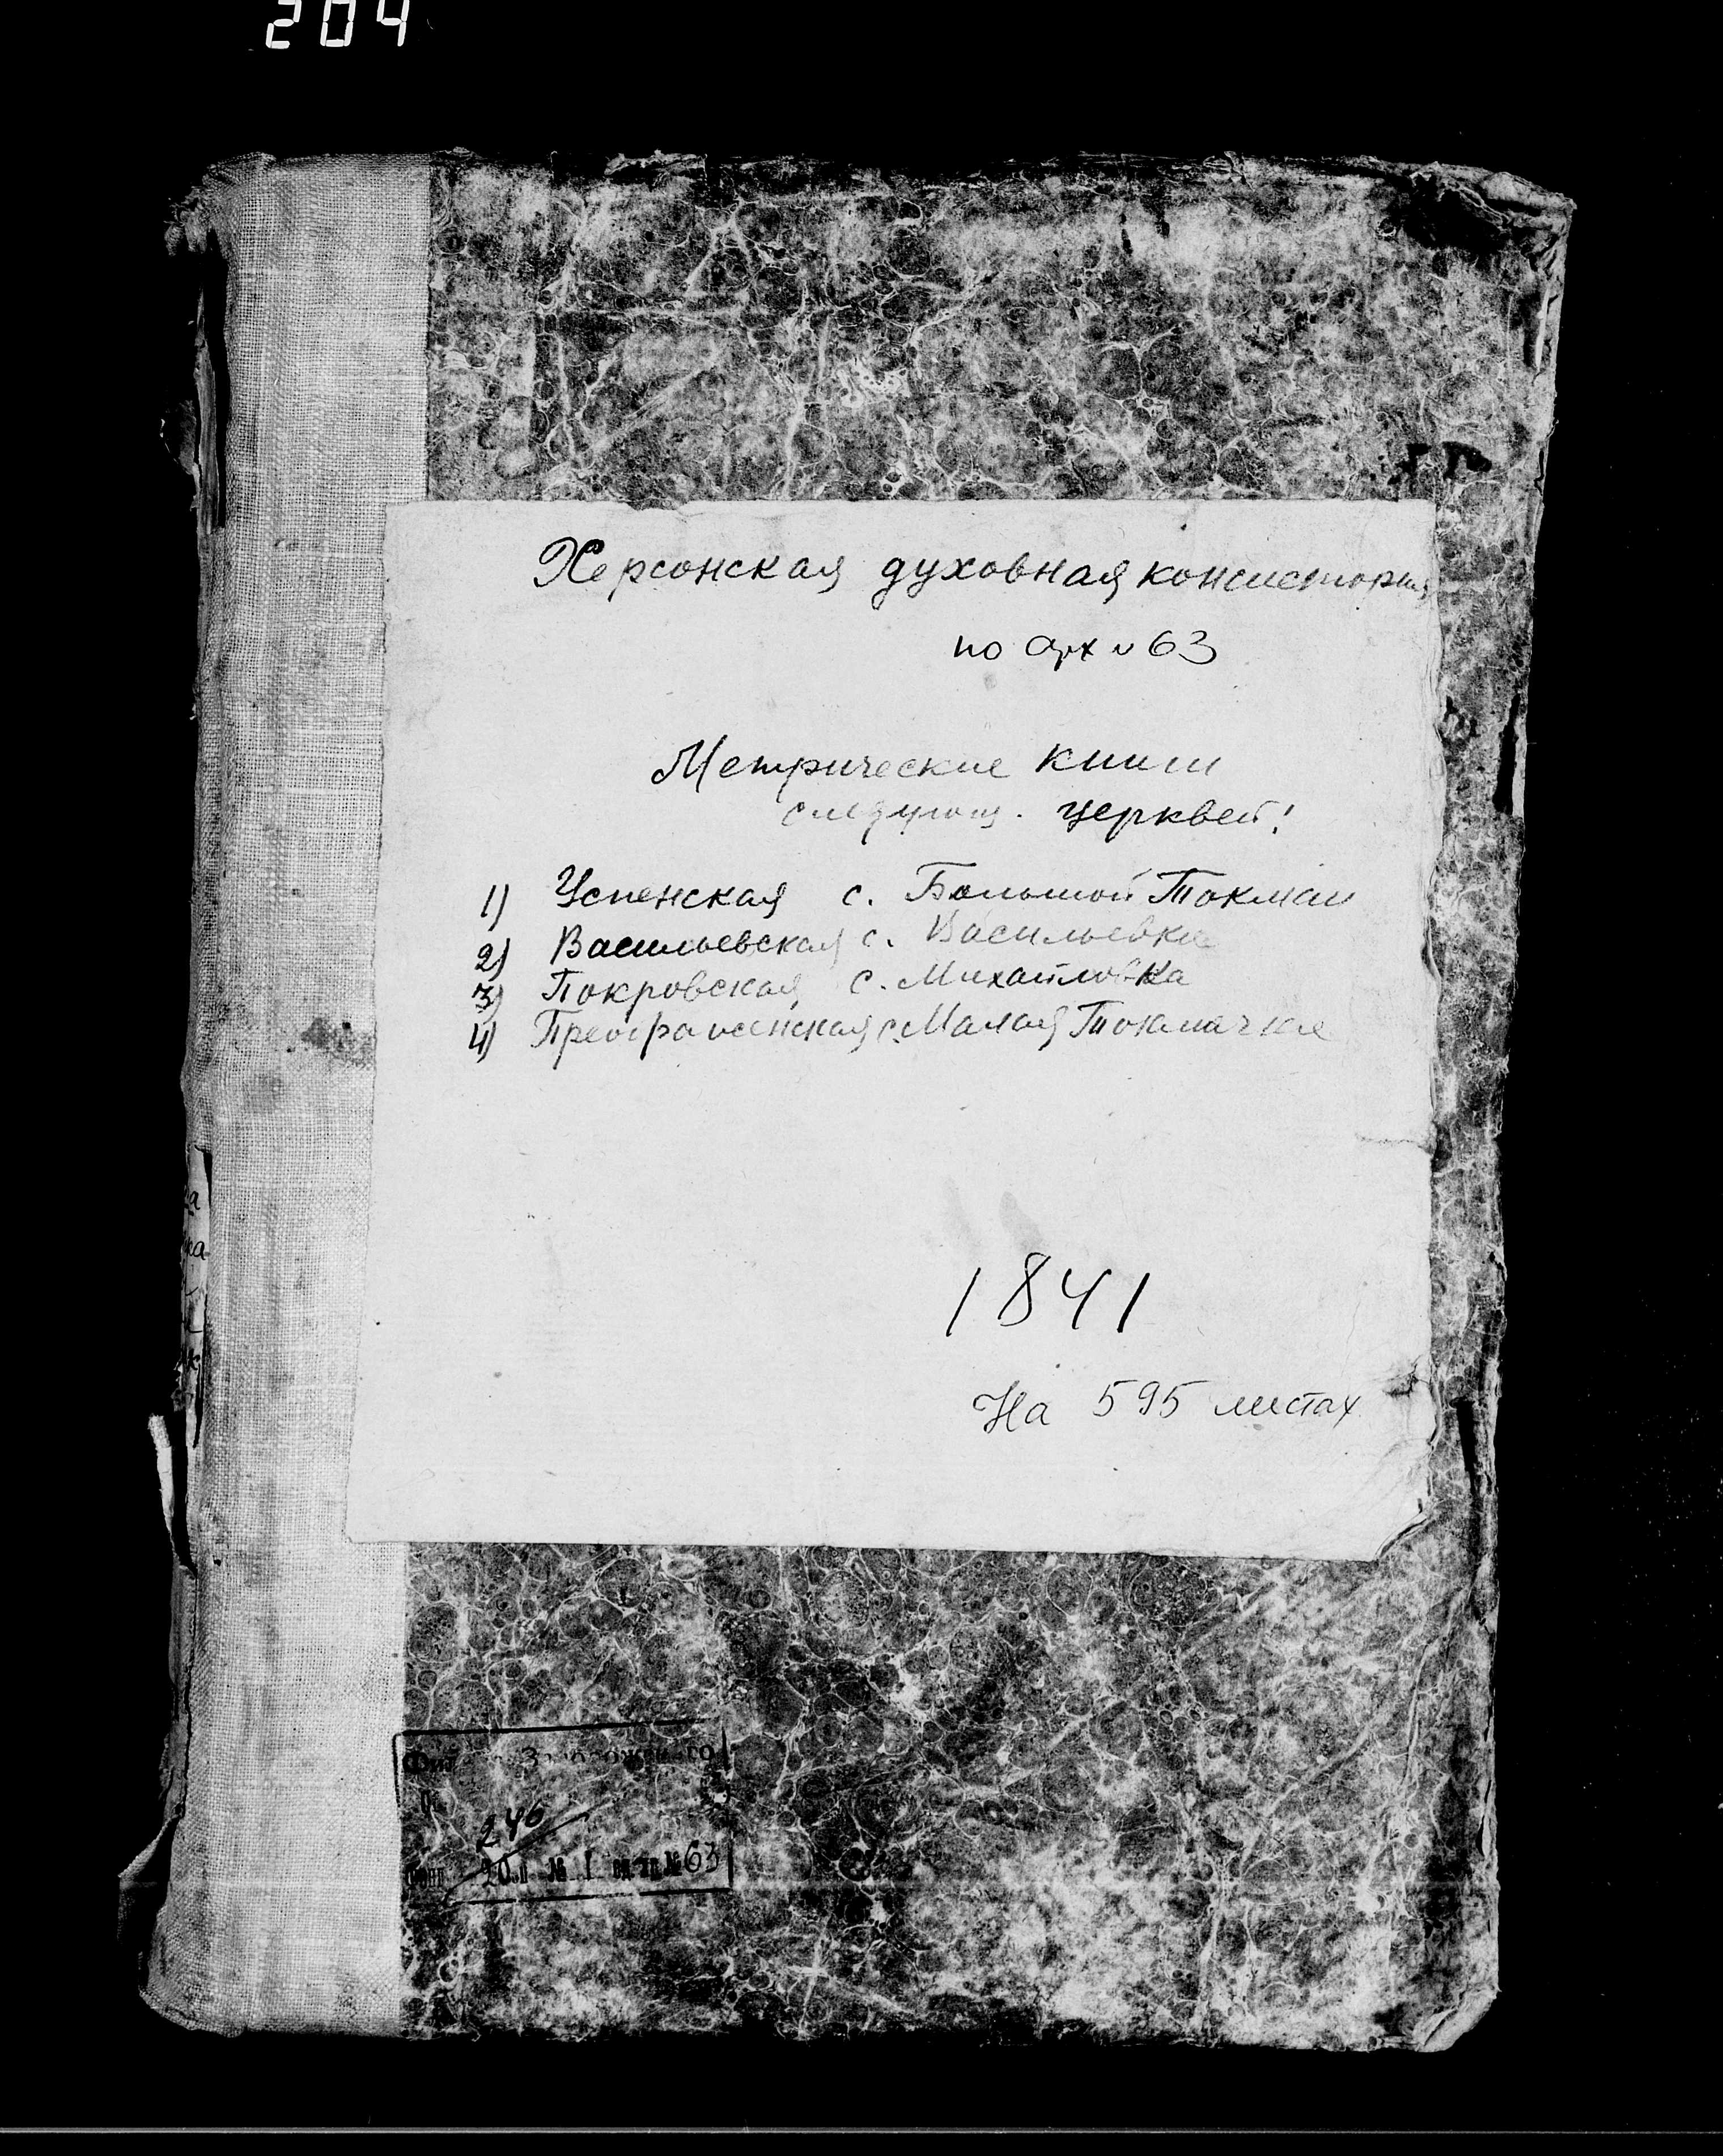 204
Херсонская духовная консистория
по арх № 63
Метрические книги
следующ. церквей:
1) Успенская с. Большой Токмак
2) Васильевская с. Васильевка
3) Покровская с. Михайловка
4) Преображенская с. Малая Токмачка
1841
На 595 листах
Запорожского
246
№ 1 ед. хр. № 63